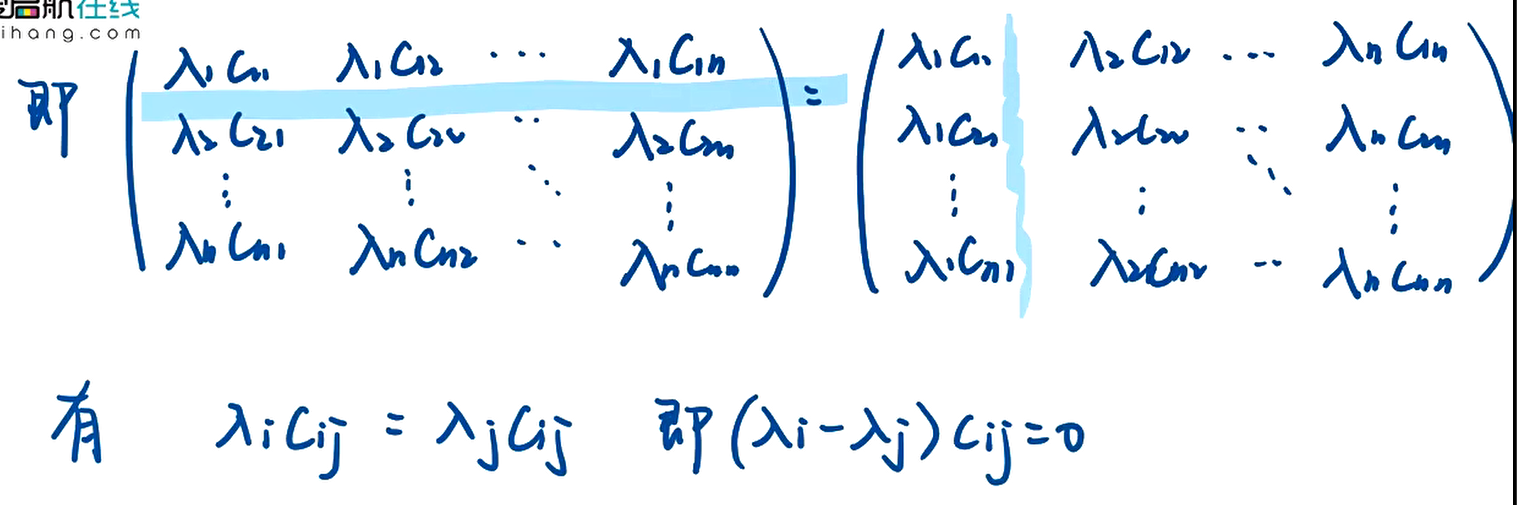 启航在线
ihang.com
即 ( λ₁C₁₁ λ₁C₁₂ ⋯ λ₁C₁ₙ ) = ( λ₁C₁₁ λ₂C₁₂ ⋯ λₙC₁ₙ )
λ₂C₂₁ λ₂C₂₂ ⋯ λ₂C₂ₙ λ₁C₂₁ λ₂C₂₂ ⋯ λₙC₂ₙ
⋮ ⋮ ⋱ ⋮ ⋮ ⋮ ⋱ ⋮
λₙCₙ₁ λₙCₙ₂ ⋯ λₙCₙₙ λ₁Cₙ₁ λ₂Cₙ₂ ⋯ λₙCₙₙ
有 λᵢCᵢⱼ = λⱼCᵢⱼ 即 (λᵢ-λⱼ)Cᵢⱼ=0